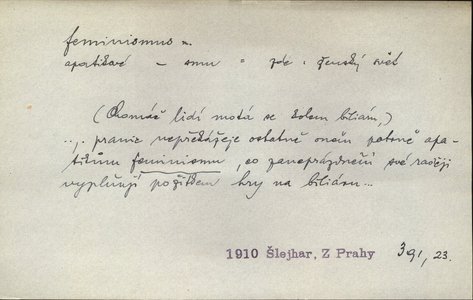 feminismus m.
apatikové – smu = zde : ženský svět
(Chomáč lidí motá se kolem biliáru,)
... pranic nepřekážeje ostatně oněm patrně apa-
tikům feminismu, co zaneprázdnění své raději
vyplňují požitkem hry na biliáru...
1910 Šlejhar, Z Prahy 391, 23.